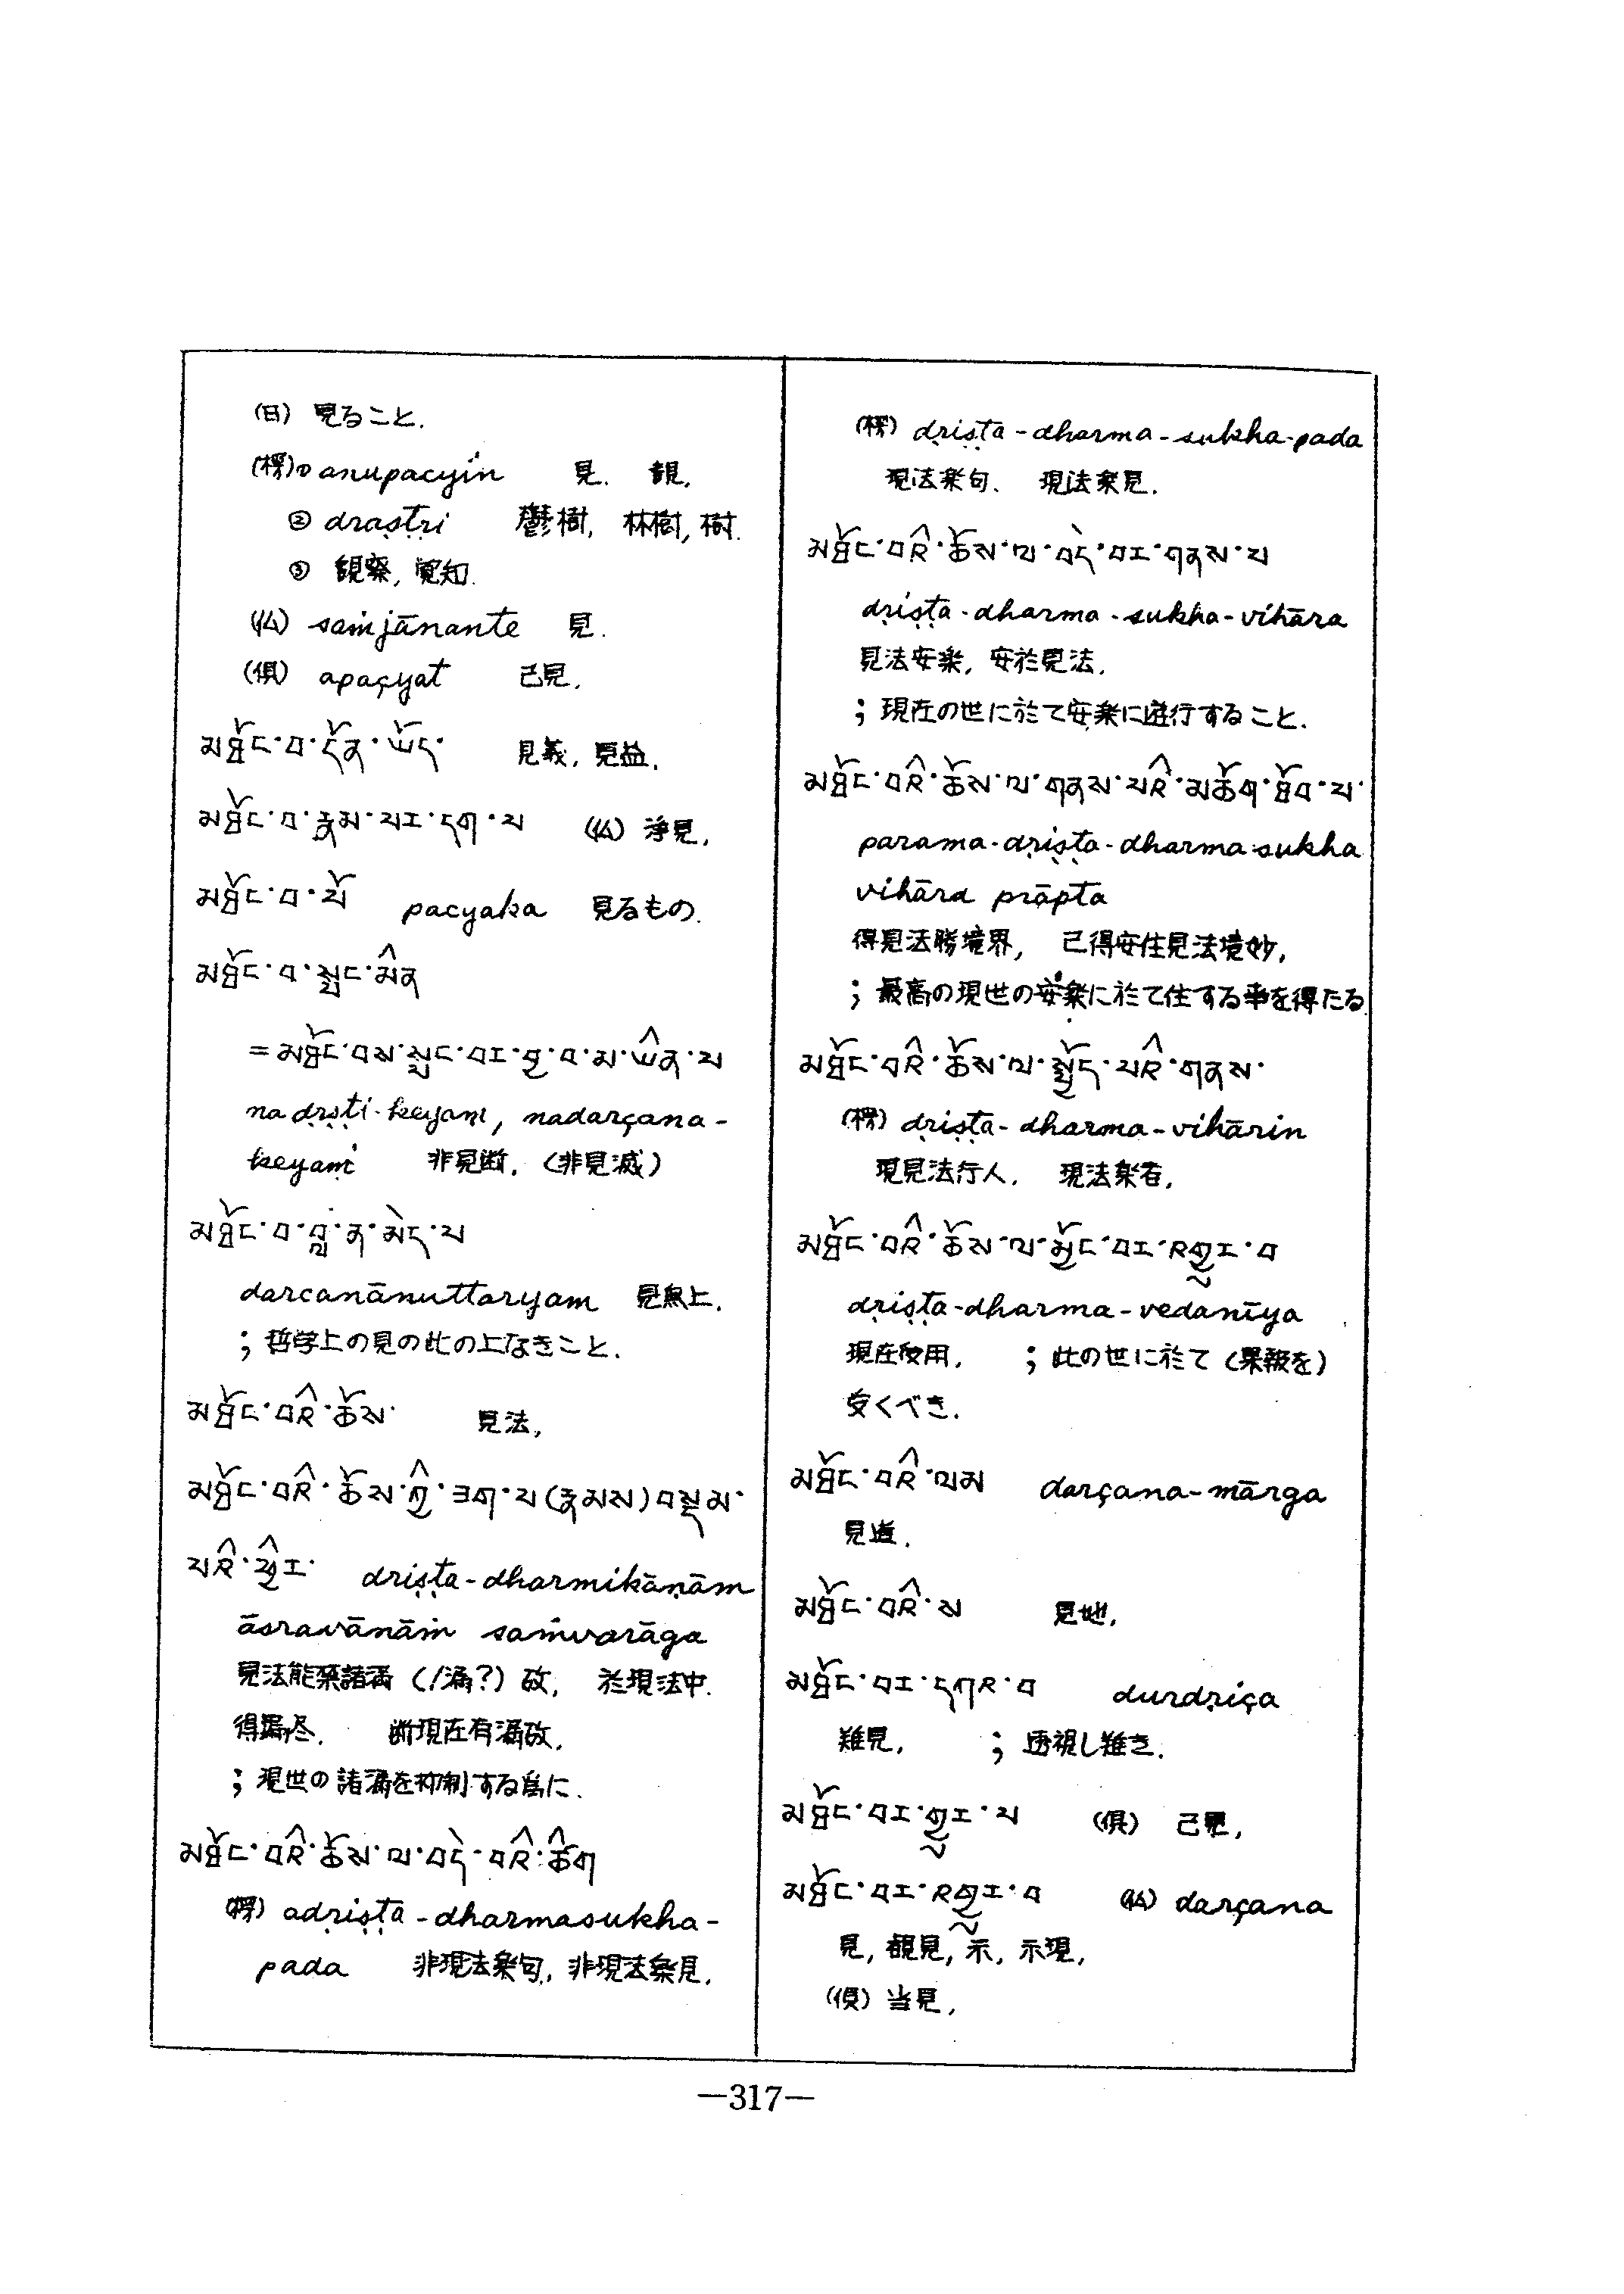 (日) 見ること.
(楞)① anupacyin 見. 観.
② draṣṭri 鬱樹, 林樹, 樹.
③ 観察, 覚知.
(仏) saṁjānante 見.
(倶) apaçyat 已見.
མཐོང་བ་དོན་ཡོད་ 見義, 見益.
མཐོང་བ་རྣམ་པར་དག་པ (仏) 浄見.
མཐོང་བ་པོ pacyaka 見るもの.
མཐོང་བ་སྤང་མིན
=མཐོང་བས་སྤང་བར་བྱ་བ་མ་ཡིན་པ
na dṛṣṭi-heyaṃ, nadarçana-
heyaṁ 非見断. (非見滅)
མཐོང་བ་བླ་ན་མེད་པ
darcanānuttaryam 見無上.
; 哲学上の見の此の上なきこと.
མཐོང་བའི་ཆོས་ 見法.
མཐོང་བའི་ཆོས་ཀྱི་ཟག་པ(རྣམས)བསྡམ་
པའི་ཕྱིར་ driṣṭa-dharmikāṇām
āsravānāṁ saṁvarāga
見法能棄諸漏 (/漏?) 故, 於現法中.
得漏尽. 断現在有漏故.
; 現世の諸漏を抑制する為に.
མཐོང་བའི་ཆོས་ལ་བདེ་བའི་ཚིག
(楞) adriṣṭa-dharmasukha-
pada 非現法楽句, 非現法楽見.
(楞) driṣṭa-dharma-sukha-pada
現法楽句. 現法楽見.
མཐོང་བའི་ཆོས་ལ་བདེ་བར་གནས་པ
driṣṭa-dharma-sukha-vihāra
見法安楽, 安於見法.
; 現在の世に於て安楽に遊行すること.
མཐོང་བའི་ཆོས་ལ་གནས་པའི་མཆོག་ཐོབ་པ་
parama-driṣṭa-dharma-sukha
vihāra prāpta
得見法勝境界, 已得安住見法境妙,
; 最高の現世の安楽に於て住する事を得たる.
མཐོང་བའི་ཆོས་ལ་སྤྱོད་པའི་གནས་
(楞) driṣṭa-dharma-vihārin
現見法行人. 現法楽者.
མཐོང་བའི་ཆོས་ལ་མྱོང་བར་འགྱུར་བ
driṣṭa-dharma-vedanīya
現在受用. ; 此の世に於て (果報を)
受くべき.
མཐོང་བའི་ལམ darçana-mārga
見道.
མཐོང་བའི་ས 見地.
མཐོང་བར་དཀའ་བ durdṛiça
難見, ; 透視し難き.
མཐོང་བར་གྱུར་པ (倶) 已見,
མཐོང་བར་འགྱུར་བ (仏) darçana
見, 観見, 示, 示現,
(倶) 当見,
—317—